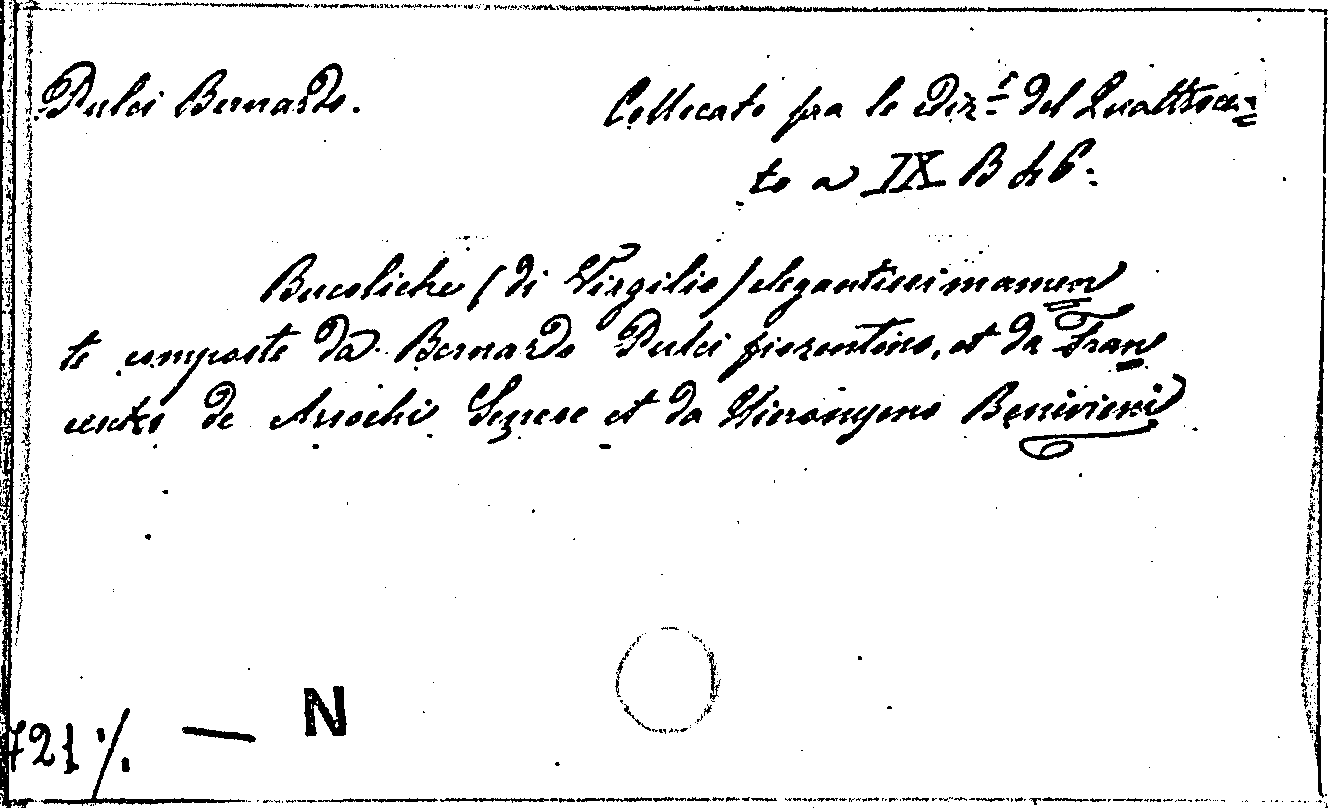 Pulci Bernardo. Collocato fra le Ediz.i del Quattrocen=
to a IX B 46.
Bucoliche (di Virgilio) elegantissimamen
te composte da Bernardo Pulci fiorentino, et da Fran
cesco de Arsochi Senese et da Hieronymo Benivieni
721 % — N